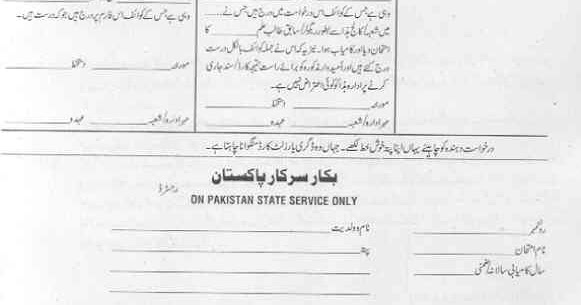 وہی ہے جس کے کوائف اس درخواست میں درج ہیں جس نے
میں شعبہ/کالج ہذا سے بطور ریگولر/سابق طالب علم ـــــــ کا
امتحان دیا اور کامیاب ہوا۔ نیز یہ کہ اس نے جملہ کوائف بالکل درست
درج کئے ہیں اور امیدوار مذکورہ کو براے راست نتیجہ کارڈ/سند جاری
کرنے پر ادارہ ہذا کو کوئی اعتراض نہیں ہے۔
مورخہ ـــــــ دستخط ـــــــ
مہر ادارہ/شعبہ ـــــــ عہدہ ـــــــ
وہی ہے جس کے کوائف اس فارم پر درج ہیں جو کہ درست ہیں۔
مورخہ ـــــــ دستخط ـــــــ
مہر ادارہ/شعبہ ـــــــ عہدہ ـــــــ
درخواست دہندہ کو چاہیئے یہاں اپنا پتہ خوش خط لکھے۔ جہاں وہ ڈگری یا رزلٹ کارڈ منگوانا چاہتا ہے۔
بکار سرکار پاکستان
رجسٹرڈ
ON PAKISTAN STATE SERVICE ONLY
رولنمبر ـــــــ نام و ولدیت ـــــــ
نام امتحان ـــــــ پتہ ـــــــ
سال کامیابی سالانہ/ضمنی ـــــــ